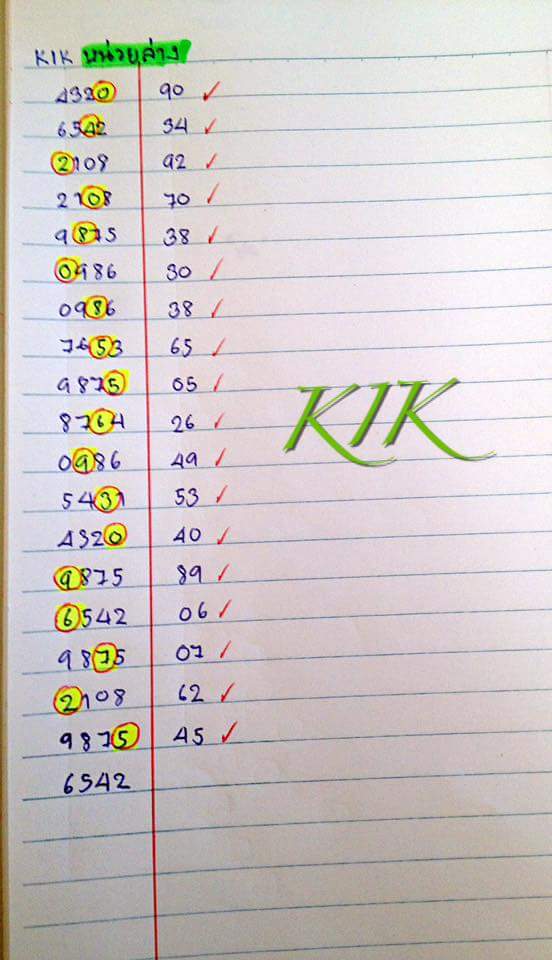 KIK หน่วยล่าง
4320 90 ✓
6542 34 ✓
2108 92 ✓
2108 70 ✓
9875 38 ✓
0986 30 ✓
0986 38 ✓
7653 65 ✓
9875 05 ✓
8764 26 ✓
KIK
0986 49 ✓
5431 53 ✓
4320 40 ✓
9875 89 ✓
6542 06 ✓
9875 07 ✓
2108 62 ✓
9875 45 ✓
6542